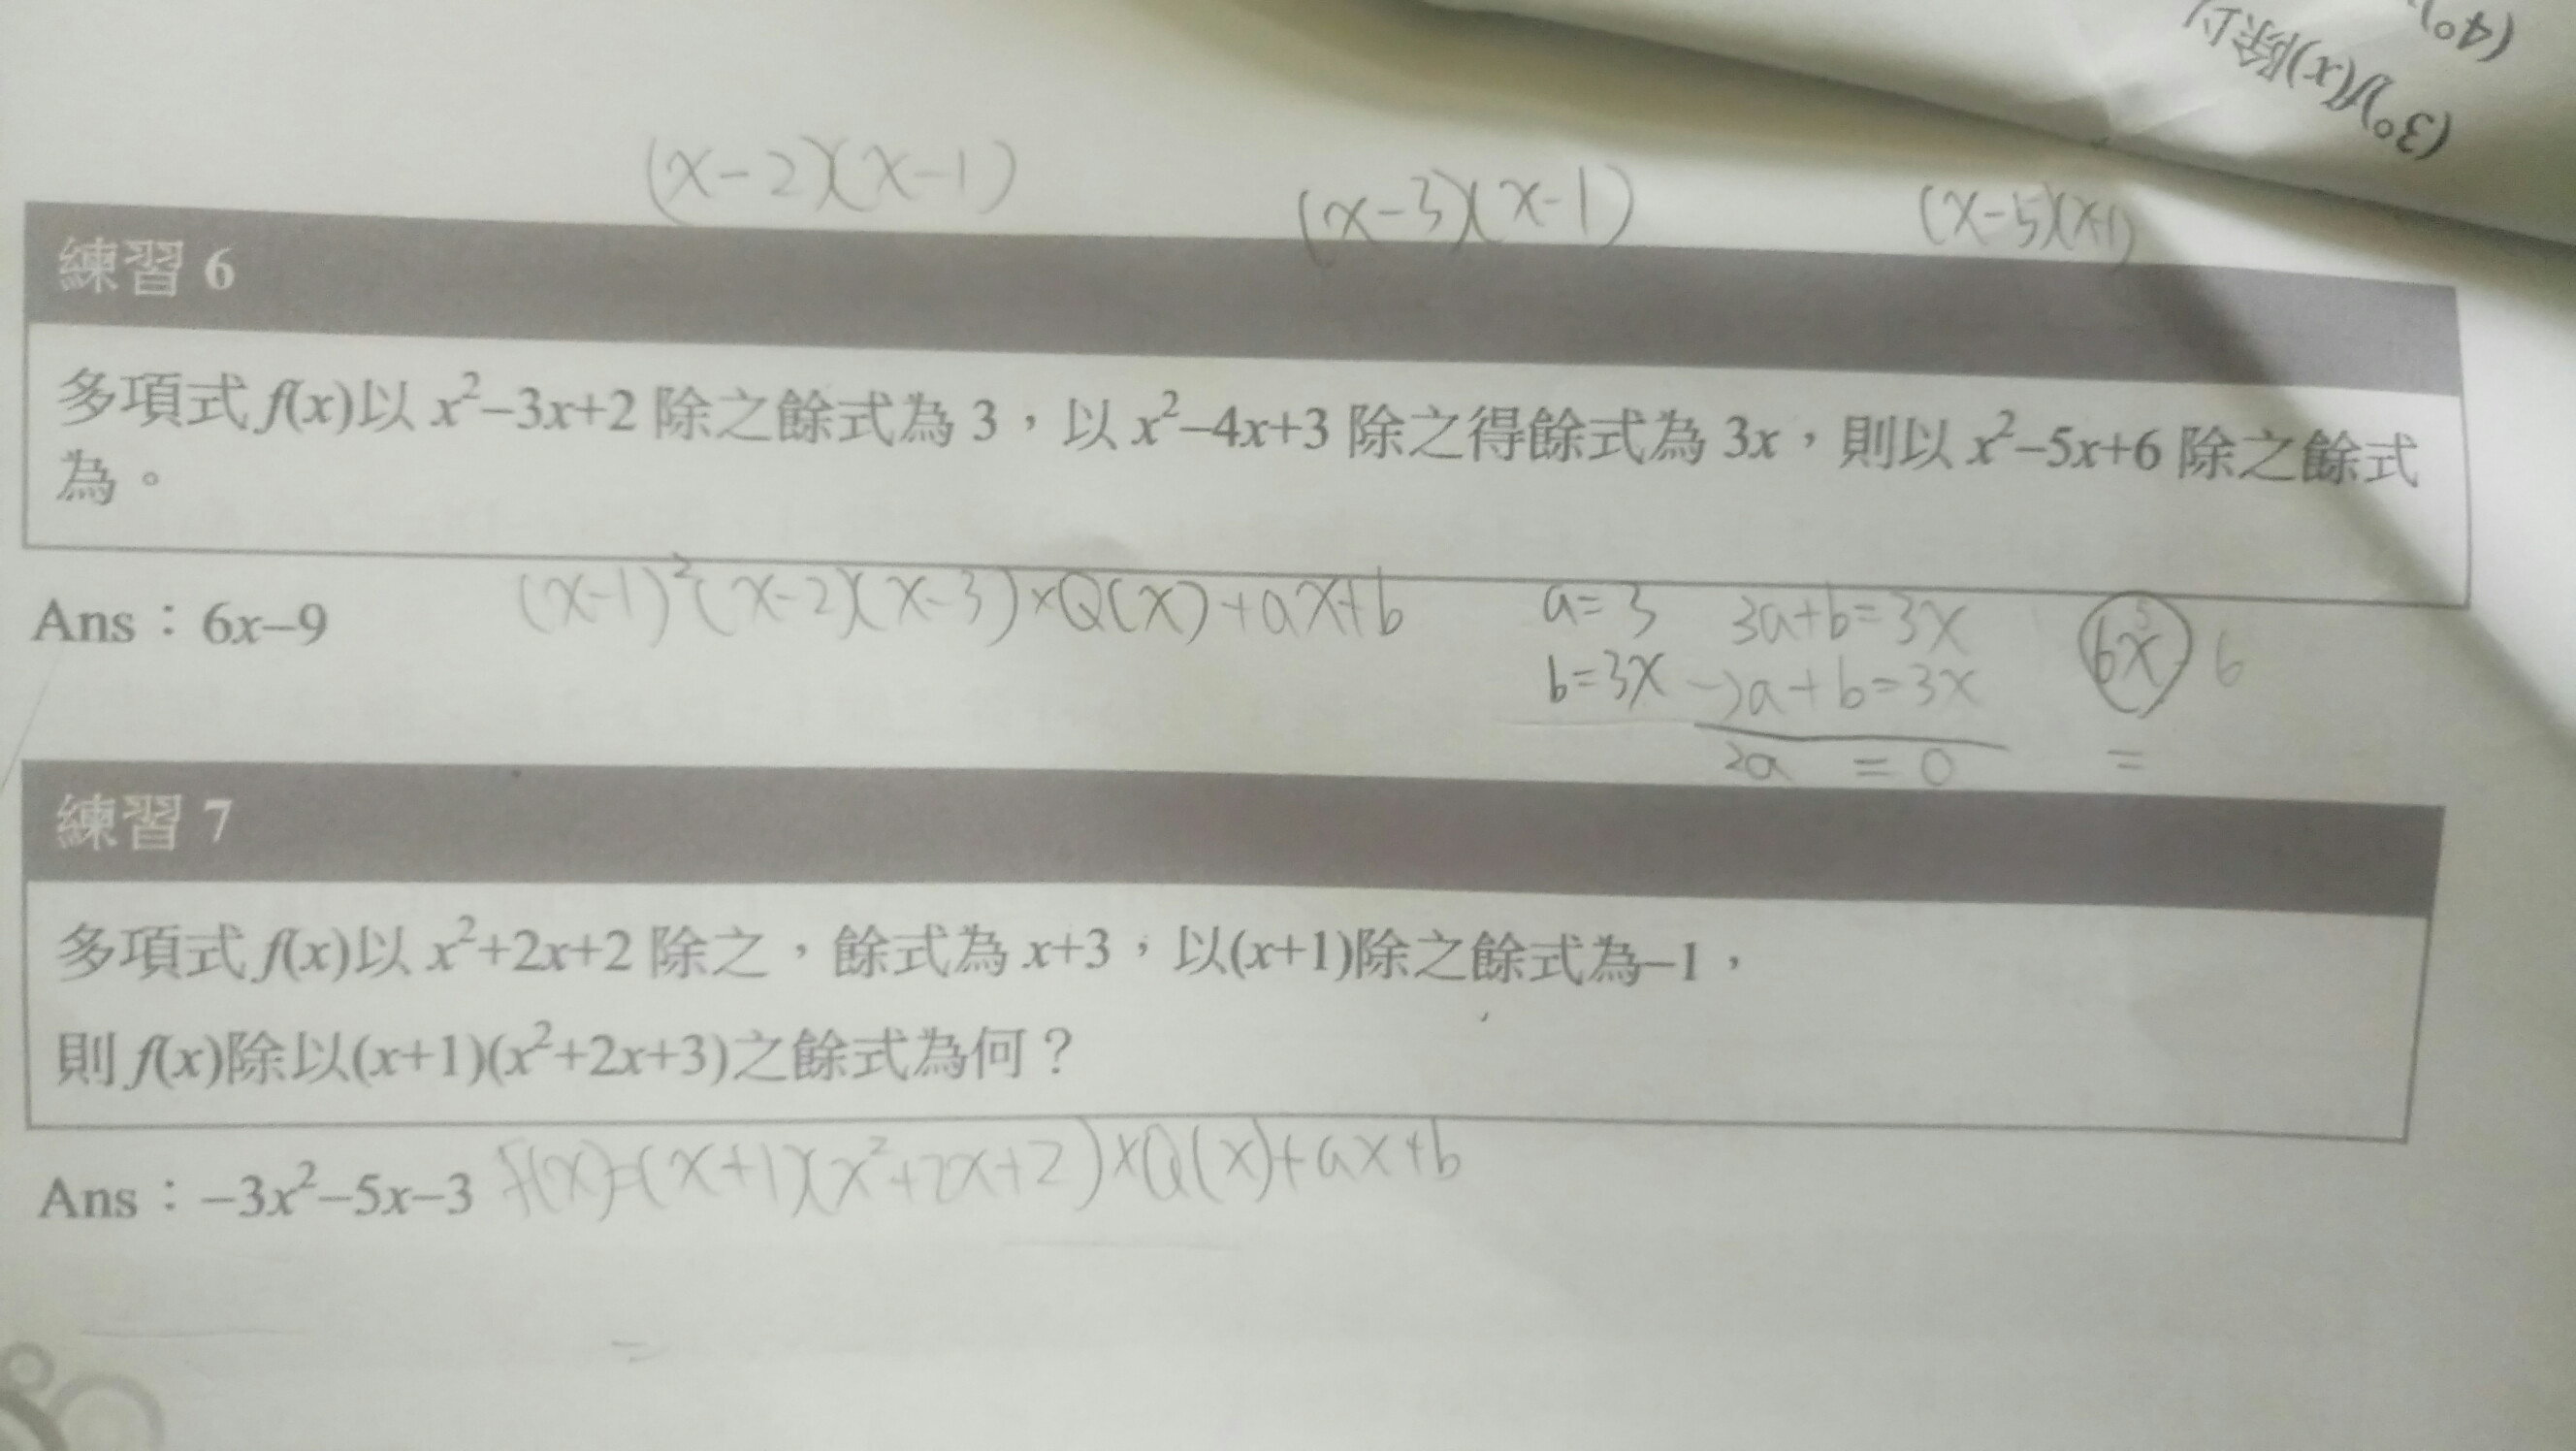 (3°)f(x)除以
(4°)
(x-2)(x-1)
(x-3)(x-1)
(x-5)(x+1)
練習 6
多項式 f(x)以 x²–3x+2 除之餘式為 3，以 x²–4x+3 除之得餘式為 3x，則以 x²–5x+6 除之餘式
為。
Ans：6x–9
(x-1)²(x-2)(x-3)×Q(x)+ax+b
a=3
b=3x
3a+b=3x
-)a+b=3x
2a = 0
6x
6
=
練習 7
多項式 f(x)以 x²+2x+2 除之，餘式為 x+3，以(x+1)除之餘式為–1，
則 f(x)除以(x+1)(x²+2x+3)之餘式為何？
Ans：–3x²–5x–3
f(x)=(x+1)(x²+2x+2)×Q(x)+ax+b
=